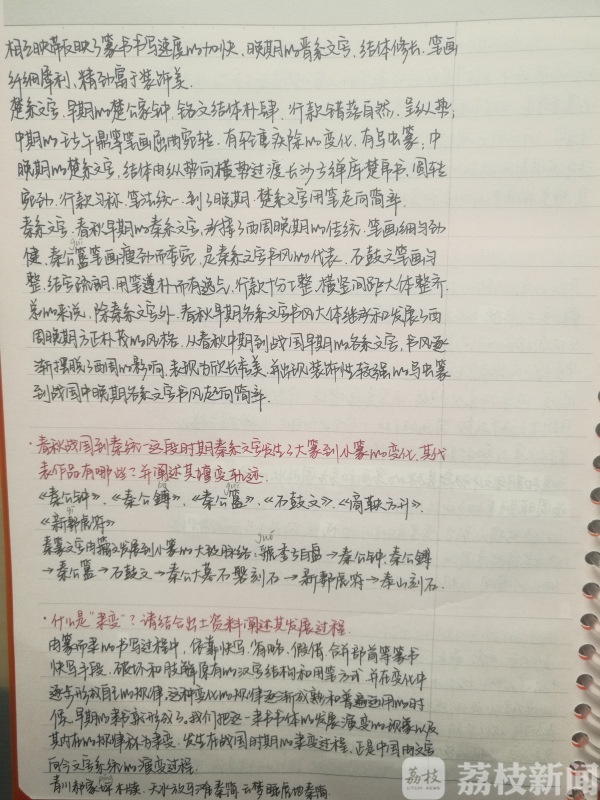 相互映带反映了篆书书写速度的加快，晚期的晋系文字，结体修长，笔画
纤细犀利，精劲富于装饰美.
楚系文字，早期的楚公豪钟，铭文结体朴肆，行款错落自然，呈纵势;
中期的王子午鼎等笔画屈曲宛转，有轻重疾徐的变化，有鸟虫篆，中
晚期的楚系文字，结体由纵势向横势过渡长沙子弹库楚帛书，圆转
宛劲，行款匀称，笔法统一，到了晚期，楚系文字用笔走向简率.
秦系文字，春秋早期的秦系文字，承接了西周晚期的传统，笔画细匀劲
健，秦公簋笔画瘦劲而季宛，是秦系文字书风的代表，石鼓文笔画匀
整，结字疏朗，用笔遵朴而有逸气，行款十分工整，横竖间距大体整齐.
总的来说，除秦系文字外，春秋早期各系文字书风大体继承和发展了西
周晚期方正朴茂的风格，从春秋中期到战国早期的各系文字，书风逐
渐摆脱了西周的影响，表现为欣长秀美，并出现装饰性较强的鸟虫篆
到战国中晚期各系文字书风趋向简率.
·春秋战国到秦统一这段时期秦系文字发生了大篆到小篆的变化，其代
表作品有哪些?并阐述其嬗变轨迹.
《秦公钟》、《秦公镈》、《秦公簋》、《石鼓文》、《商鞅方升》、
《新郪虎符》
秦篆文字由籀文发展到小篆的大致脉络:虢季子白盘→秦公钟、秦公镈
→秦公簋→石鼓文→秦公大墓石磬刻石→新郪虎符→泰山刻石.
·什么是"隶变"?请结合出土资料阐述其发展过程.
由篆而隶的书写过程中，依靠快写，省略，假借，合并部首等篆书
快写手段，破坏和肢解原有的汉字结构和用笔方式，并在变化中
逐步形成自己的规律，这种变化的规律逐渐成熟和普遍运用的时
候，早期的隶书就形成了.我们把这一隶书书体的发展演变的现象以及
其内在的规律称为隶变.发生在战国时期的隶变过程，正是中国由古文字
向今文字系统的演变过程.
青川郝家坪木牍，天水放马滩秦简，云梦睡虎地秦简
荔枝
荔枝新闻